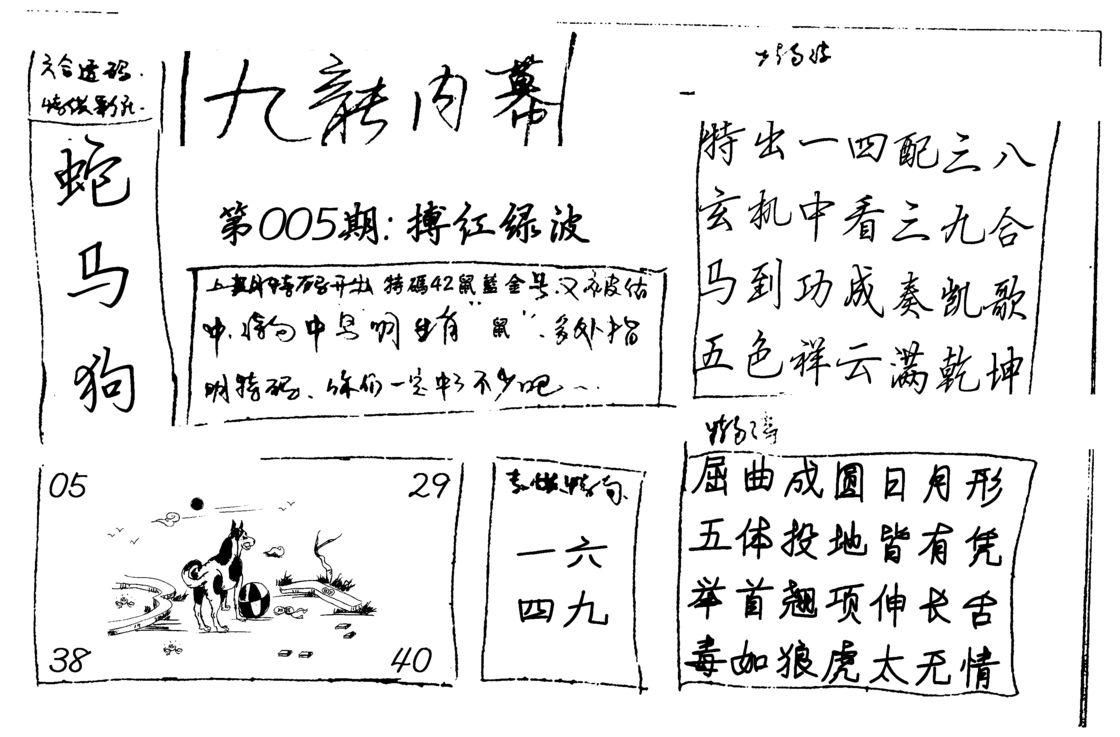 六合透码.
蛇
马
狗
九龍内幕
第005期:搏红绿波
上期特码开出 特碼42鼠藍金号.又被估
中.特肖中 "鼠".多处指
明特码、你们一定中了不少吧
特出一四配三八
玄机中看三九合
马到功成奏凯歌
五色祥云满乾坤
05
29
38
40
一六
四九
屈曲成圆日月形
五体投地皆有凭
举首翘项伸长舌
毒如狼虎太无情